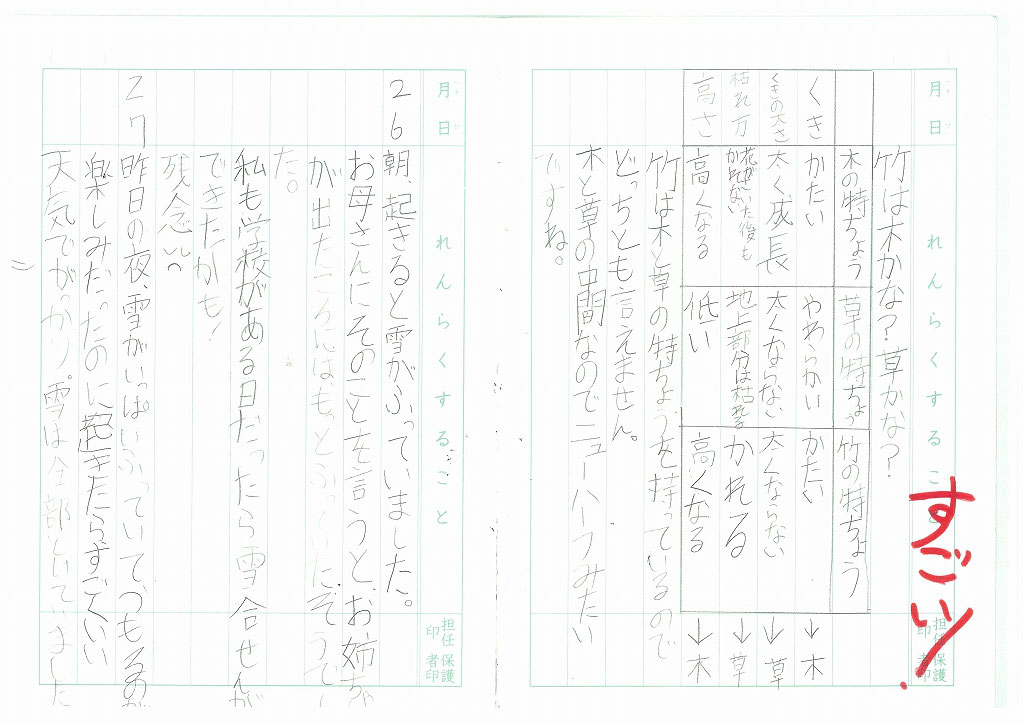 月 日 れんらくすること 担任印 保護者印
すごい!
竹は木かな?草かな?
木の特ちょう 草の特ちょう 竹の特ちょう
くき かたい やわらかい かたい ↓木
くきの太さ 太く成長 太くならない 太くならない ↓草
枯れ方 花がさいた後も かれない 地上部分は枯れる かれる ↓草
高さ 高くなる 低い 高くなる ↓木
竹は木と草の特ちょうを持っているので
どっちとも言えません。
木と草の中間なのでニューハーフみたい
ですね。
月 日 れんらくすること 担任印 保護者印
26 朝、起きると雪がふっていました。
お母さんにそのことを言うと、お姉ちゃ
が出たころにはもっとふっていたそうでし
た。
私も学校がある日だったら雪合せんが
できたかも!
残念い。
27 昨日の夜、雪がいっぱいふっていて、つもるのが
楽しみだったのに起きたらすごくいい
天気でがっかり。雪は全部とけていました